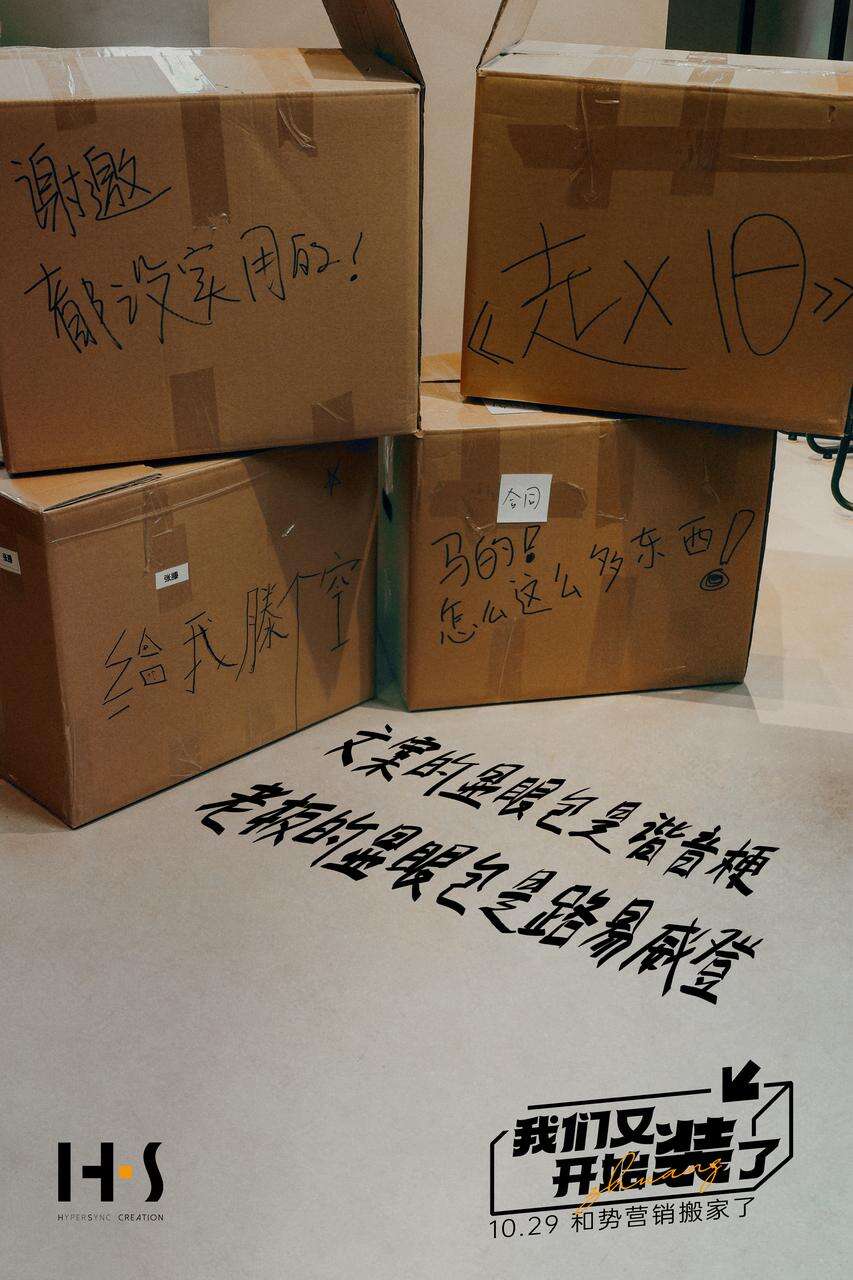 谢邀
都没实用的!
《走X旧》
张臻
给我滕个空
合同
马的!
怎么这么多东西!
文案的显眼包是谐音梗
老板的显眼包是路易威登
H·S
HYPERSYNC CREATION
我们又
开始装了
zhuang
10.29 和势营销搬家了